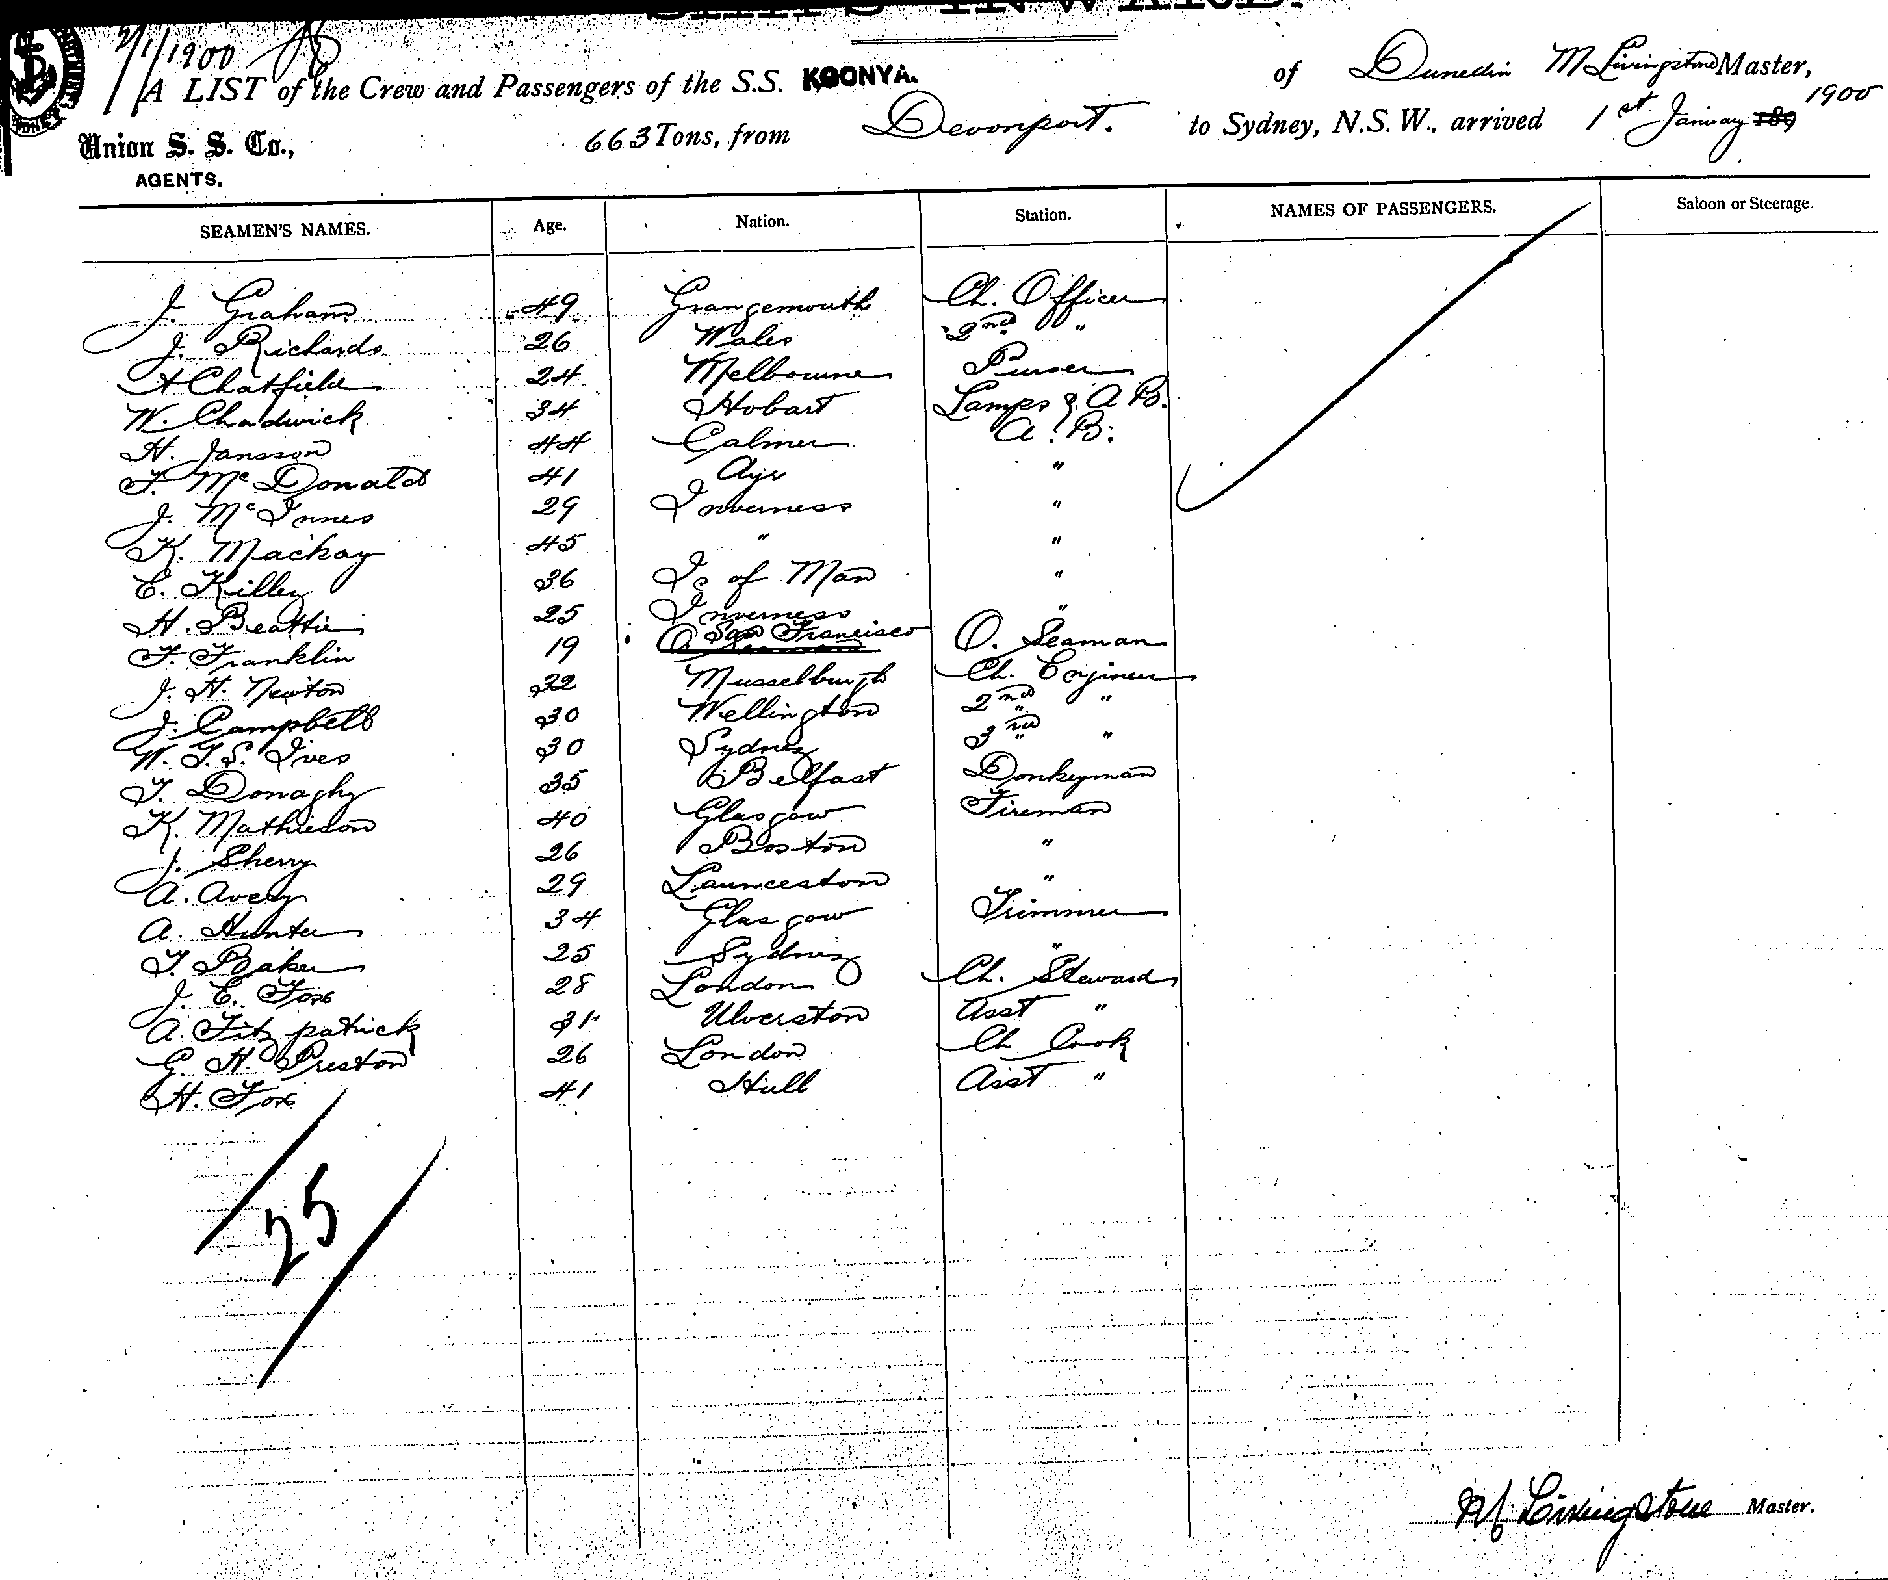 SHIPS INWARD.
2/1/1900
A LIST of the Crew and Passengers of the S.S. KOONYA. of Dunedin M Livingstone Master,
Union S. S. Co., 663 Tons, from Devonport. to Sydney, N.S.W., arrived 1st January 189 1900
AGENTS.
SEAMEN'S NAMES. Age. Nation. Station. NAMES OF PASSENGERS. Saloon or Steerage.
J. Graham 49 Grangemouth Ch. Officer
J. Richards 26 Wales 2nd "
A Chatfield 24 Melbourne Purser
W. Chadwick 34 Hobart Lamps & A B.
H. Jansson 44 Calmer A. B.
F. McDonald 41 Ayr "
J. McInnes 29 Inverness "
K. Mackay 45 " "
E. Killey 36 Is of Man "
H. Beattie 25 Inverness "
F. Franklin 19 San Francisco O. Seaman
J. H. Newton 32 Musselburgh Ch. Engineer
J. Campbell 30 Wellington 2nd "
W. T. S. Ives 30 Sydney 3rd "
T. Donaghy 35 Belfast Donkeyman
K. Mathieson 40 Glasgow Fireman
J. Sherry 26 Boston "
A. Avery 29 Launceston "
A. Hunter 34 Glasgow Trimmer
T. Baker 25 Sydney "
J. E. Fox 28 London Ch. Steward
A. Fitzpatrick 31 Ulverston Asst "
G. H. Preston 26 London Ch Cook
H. Fox 41 Hull Asst "
25
M Livingstone Master.